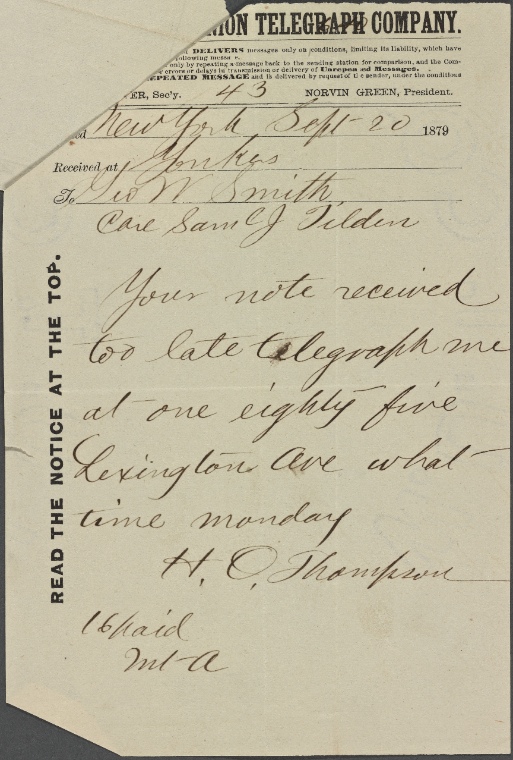 ION TELEGRAPH COMPANY.
DELIVERS messages only on conditions, limiting its liability, which have
following
only by repeating a message back to the sending station for comparison, and the Com-
errors or delays in transmission or delivery of Unrepeated Messages.
REPEATED MESSAGE and is delivered by request of the sender, under the conditions
ER, Sec'y. 43 NORVIN GREEN, President.
ed New York Sept 20 1879
Received at Yonkers
To Geo W Smith
Care Saml J Tilden
Your note received
too late telegraph me
at one eighty five
Lexington Ave what
time monday
H. O. Thompson
16 paid
READ THE NOTICE AT THE TOP.